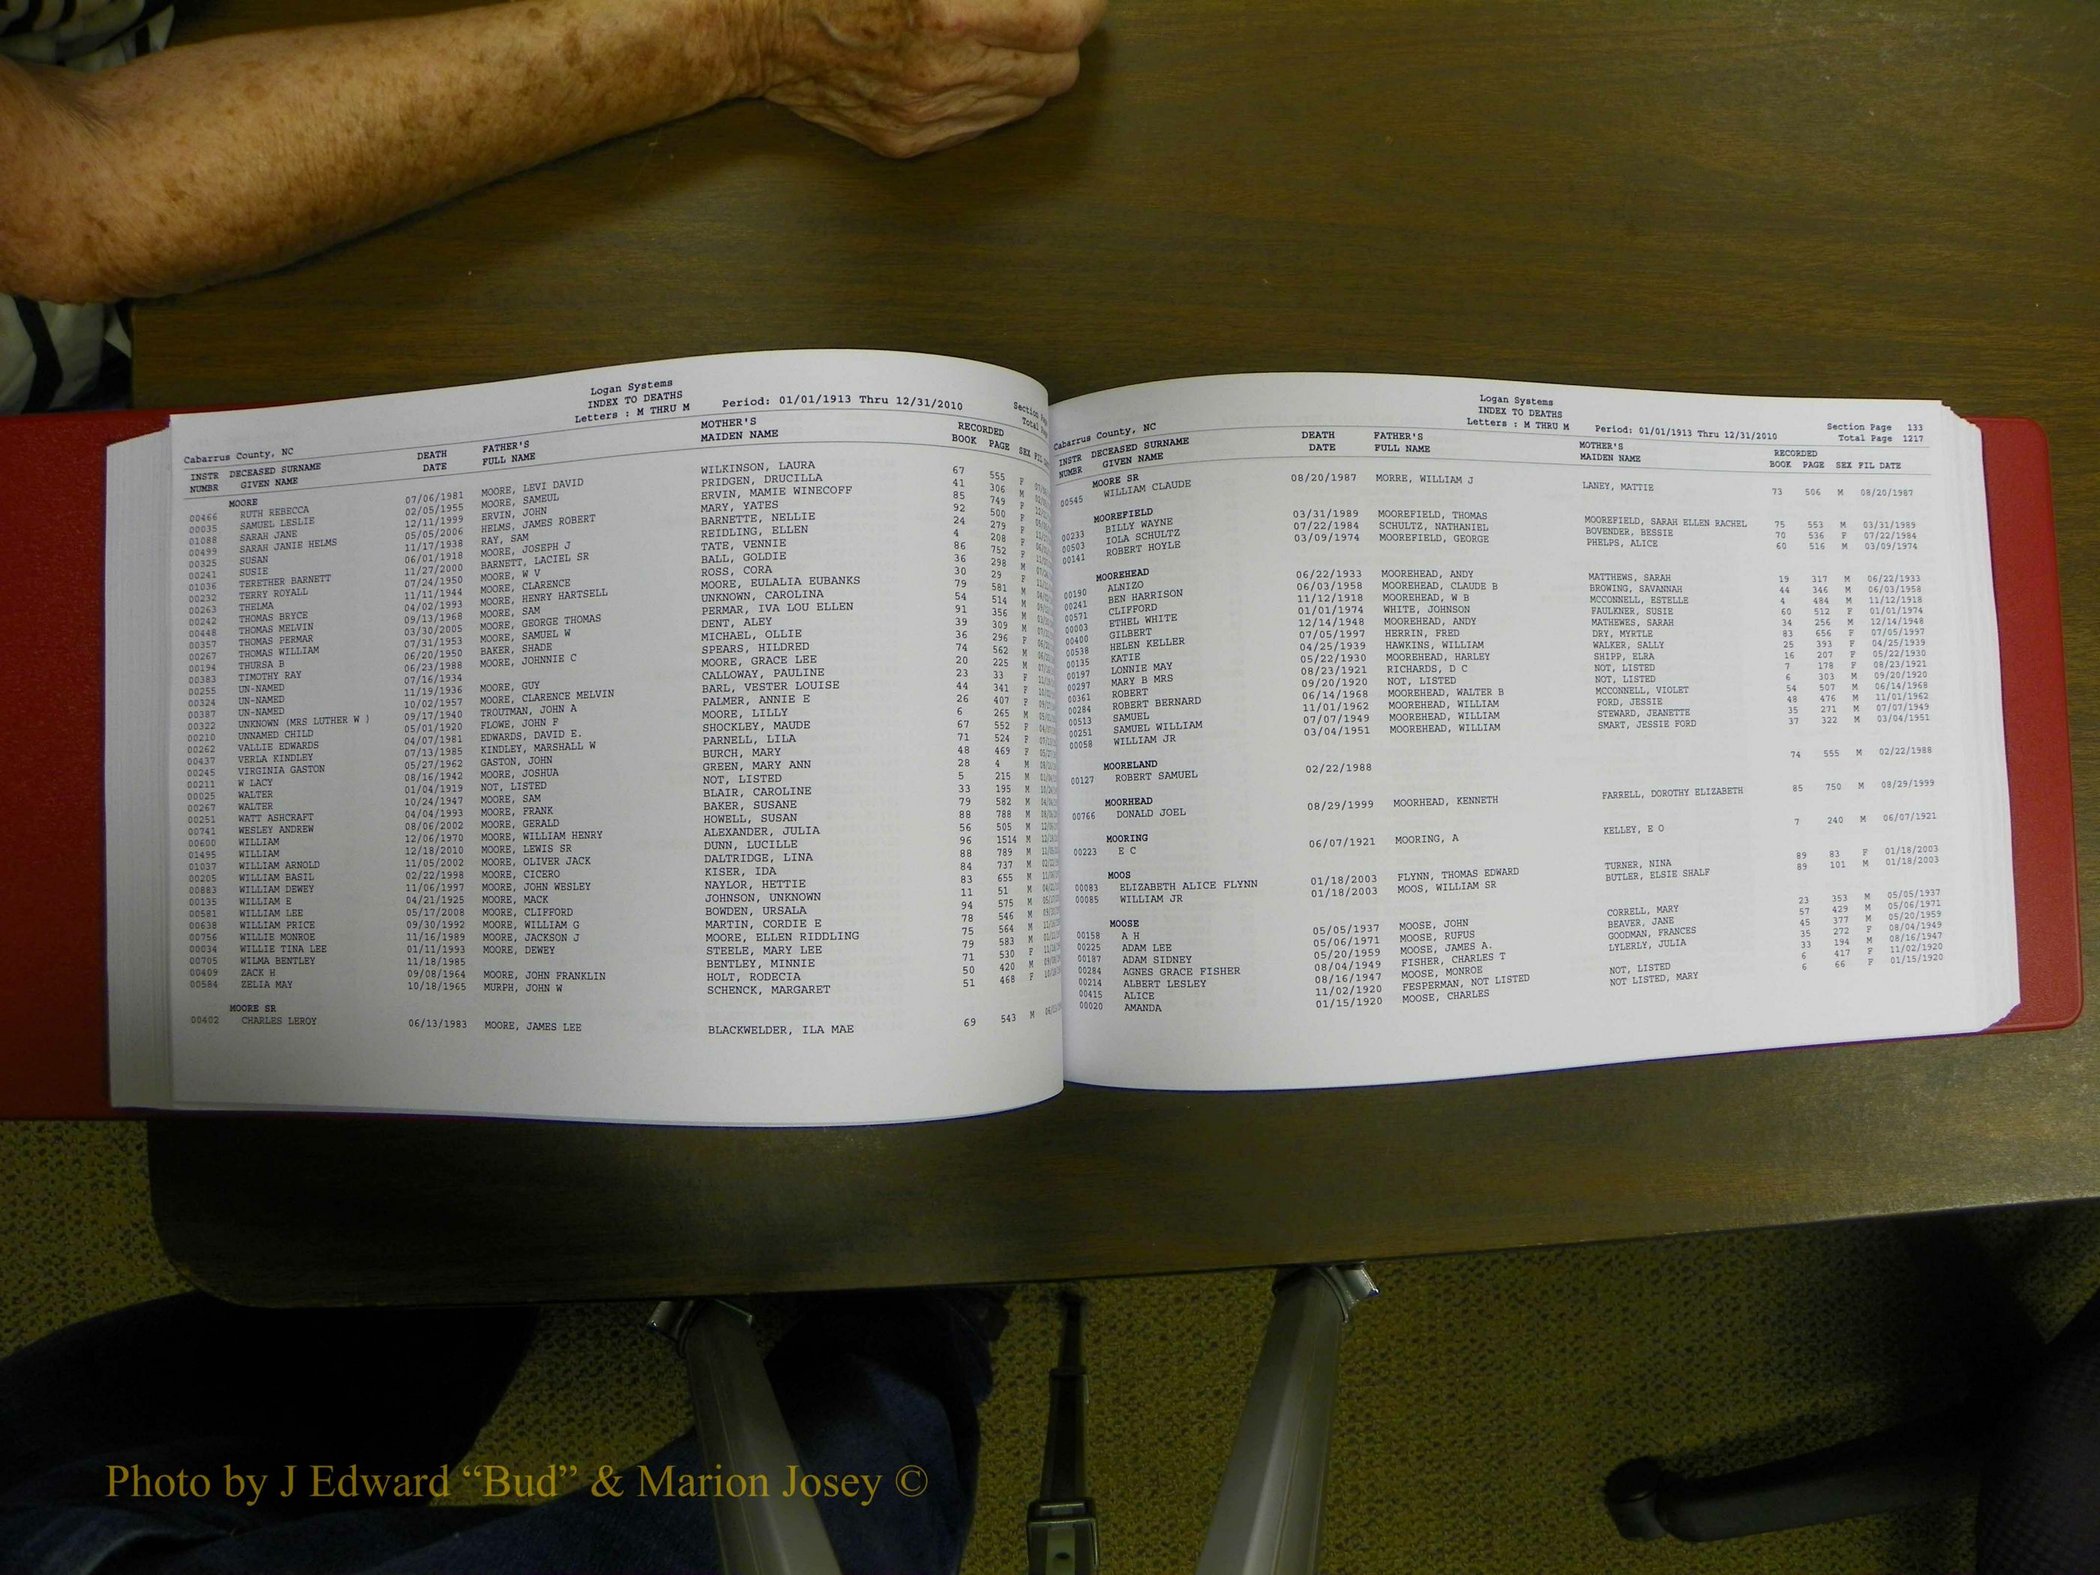 Logan Systems
INDEX TO DEATHS
Letters : M THRU M Period: 01/01/1913 Thru 12/31/2010
Cabarrus County, NC
INSTR DECEASED SURNAME DEATH FATHER'S MOTHER'S RECORDED
NUMBR GIVEN NAME DATE FULL NAME MAIDEN NAME BOOK PAGE SEX
MOORE
00466 RUTH REBECCA 07/06/1981 MOORE, LEVI DAVID WILKINSON, LAURA 67 555 F
00035 SAMUEL LESLIE 02/05/1955 MOORE, SAMEUL PRIDGEN, DRUCILLA 41 306 M
01088 SARAH JANE 12/11/1999 ERVIN, JOHN ERVIN, MAMIE WINECOFF 85 749 F
00499 SARAH JANIE HELMS 05/05/2006 HELMS, JAMES ROBERT MARY, YATES 92 500 F
00325 SUSAN 11/17/1938 RAY, SAM BARNETTE, NELLIE 24 279 F
00241 SUSIE 06/01/1918 MOORE, JOSEPH J REIDLING, ELLEN 4 208 F
01036 TERETHER BARNETT 11/27/2000 BARNETT, LACIEL SR TATE, VENNIE 86 752 F
00232 TERRY ROYALL 07/24/1950 MOORE, W V BALL, GOLDIE 36 298 M
00263 THELMA 11/11/1944 MOORE, CLARENCE ROSS, CORA 30 29 F
00242 THOMAS BRYCE 04/02/1993 MOORE, HENRY HARTSELL MOORE, EULALIA EUBANKS 79 581 M
00448 THOMAS MELVIN 09/13/1968 MOORE, SAM UNKNOWN, CAROLINA 54 514 M
00357 THOMAS PERMAR 03/30/2005 MOORE, GEORGE THOMAS PERMAR, IVA LOU ELLEN 91 356 M
00267 THOMAS WILLIAM 07/31/1953 MOORE, SAMUEL W DENT, ALEY 39 309 M
00194 THURSA B 06/20/1950 BAKER, SHADE MICHAEL, OLLIE 36 296 F
00383 TIMOTHY RAY 06/23/1988 MOORE, JOHNNIE C SPEARS, HILDRED 74 562 M
00255 UN-NAMED 07/16/1934 MOORE, GRACE LEE 20 225 M
00324 UN-NAMED 11/19/1936 MOORE, GUY CALLOWAY, PAULINE 23 33 F
00387 UN-NAMED 10/02/1957 MOORE, CLARENCE MELVIN BARL, VESTER LOUISE 44 341 F
00322 UNKNOWN (MRS LUTHER W ) 09/17/1940 TROUTMAN, JOHN A PALMER, ANNIE E 26 407 F
00210 UNNAMED CHILD 05/01/1920 FLOWE, JOHN F MOORE, LILLY 6 265 M
00262 VALLIE EDWARDS 04/07/1981 EDWARDS, DAVID E. SHOCKLEY, MAUDE 67 552 F
00437 VERLA KINDLEY 07/13/1985 KINDLEY, MARSHALL W PARNELL, LILA 71 524 F
00245 VIRGINIA GASTON 05/27/1962 GASTON, JOHN BURCH, MARY 48 469 F
00211 W LACY 08/16/1942 MOORE, JOSHUA GREEN, MARY ANN 28 4 M
00025 WALTER 01/04/1919 NOT, LISTED NOT, LISTED 5 215 M
00267 WALTER 10/24/1947 MOORE, SAM BLAIR, CAROLINE 33 195 M
00251 WATT ASHCRAFT 04/04/1993 MOORE, FRANK BAKER, SUSANE 79 582 M
00741 WESLEY ANDREW 08/06/2002 MOORE, GERALD HOWELL, SUSAN 88 788 M
00600 WILLIAM 12/06/1970 MOORE, WILLIAM HENRY ALEXANDER, JULIA 56 505 M
01495 WILLIAM 12/18/2010 MOORE, LEWIS SR DUNN, LUCILLE 96 1514 M
01037 WILLIAM ARNOLD 11/05/2002 MOORE, OLIVER JACK DALTRIDGE, LINA 88 789 M
00205 WILLIAM BASIL 02/22/1998 MOORE, CICERO KISER, IDA 84 737 M
00883 WILLIAM DEWEY 11/06/1997 MOORE, JOHN WESLEY NAYLOR, HETTIE 83 655 M
00135 WILLIAM E 04/21/1925 MOORE, MACK JOHNSON, UNKNOWN 11 51 M
00581 WILLIAM LEE 05/17/2008 MOORE, CLIFFORD BOWDEN, URSALA 94 575 M
00638 WILLIAM PRICE 09/30/1992 MOORE, WILLIAM G MARTIN, CORDIE E 78 546 M
00756 WILLIE MONROE 11/16/1989 MOORE, JACKSON J MOORE, ELLEN RIDDLING 75 564 M
00034 WILLIE TINA LEE 01/11/1993 MOORE, DEWEY STEELE, MARY LEE 79 583 M
00705 WILMA BENTLEY 11/18/1985 BENTLEY, MINNIE 71 530 F
00409 ZACK H 09/08/1964 MOORE, JOHN FRANKLIN HOLT, RODECIA 50 420 M
00584 ZELIA MAY 10/18/1965 MURPH, JOHN W SCHENCK, MARGARET 51 468 F
MOORE SR
00402 CHARLES LEROY 06/13/1983 MOORE, JAMES LEE BLACKWELDER, ILA MAE 69 543 M
Logan Systems
INDEX TO DEATHS
Letters : M THRU M Period: 01/01/1913 Thru 12/31/2010
Section Page 133
Cabarrus County, NC Total Page 1217
INSTR DECEASED SURNAME DEATH FATHER'S MOTHER'S RECORDED
NUMBR GIVEN NAME DATE FULL NAME MAIDEN NAME BOOK PAGE SEX FIL DATE
MOORE SR
00545 WILLIAM CLAUDE 08/20/1987 MORRE, WILLIAM J LANEY, MATTIE 73 506 M 08/20/1987
MOOREFIELD
00233 BILLY WAYNE 03/31/1989 MOOREFIELD, THOMAS MOOREFIELD, SARAH ELLEN RACHEL 75 553 M 03/31/1989
00503 IOLA SCHULTZ 07/22/1984 SCHULTZ, NATHANIEL BOVENDER, BESSIE 70 536 F 07/22/1984
00141 ROBERT HOYLE 03/09/1974 MOOREFIELD, GEORGE PHELPS, ALICE 60 516 M 03/09/1974
MOOREHEAD
00190 ALNIZO 06/22/1933 MOOREHEAD, ANDY MATTHEWS, SARAH 19 317 M 06/22/1933
00241 BEN HARRISON 06/03/1958 MOOREHEAD, CLAUDE B BROWING, SAVANNAH 44 346 M 06/03/1958
00571 CLIFFORD 11/12/1918 MOOREHEAD, W B MCCONNELL, ESTELLE 4 484 M 11/12/1918
00003 ETHEL WHITE 01/01/1974 WHITE, JOHNSON FAULKNER, SUSIE 60 512 F 01/01/1974
00400 GILBERT 12/14/1948 MOOREHEAD, ANDY MATHEWES, SARAH 34 256 M 12/14/1948
00538 HELEN KELLER 07/05/1997 HERRIN, FRED DRY, MYRTLE 83 656 F 07/05/1997
00135 KATIE 04/25/1939 HAWKINS, WILLIAM WALKER, SALLY 25 393 F 04/25/1939
00197 LONNIE MAY 05/22/1930 MOOREHEAD, HARLEY SHIPP, ELRA 16 207 F 05/22/1930
00297 MARY B MRS 08/23/1921 RICHARDS, D C NOT, LISTED 7 178 F 08/23/1921
00361 ROBERT 09/20/1920 NOT, LISTED NOT, LISTED 6 303 M 09/20/1920
00284 ROBERT BERNARD 06/14/1968 MOOREHEAD, WALTER B MCCONNELL, VIOLET 54 507 M 06/14/1968
00513 SAMUEL 11/01/1962 MOOREHEAD, WILLIAM FORD, JESSIE 48 476 M 11/01/1962
00251 SAMUEL WILLIAM 07/07/1949 MOOREHEAD, WILLIAM STEWARD, JEANETTE 35 271 M 07/07/1949
00058 WILLIAM JR 03/04/1951 MOOREHEAD, WILLIAM SMART, JESSIE FORD 37 322 M 03/04/1951
MOORELAND
00127 ROBERT SAMUEL 02/22/1988 74 555 M 02/22/1988
MOORHEAD
00766 DONALD JOEL 08/29/1999 MOORHEAD, KENNETH FARRELL, DOROTHY ELIZABETH 85 750 M 08/29/1999
MOORING
00223 E C 06/07/1921 MOORING, A KELLEY, E O 7 240 M 06/07/1921
MOOS
00083 ELIZABETH ALICE FLYNN 01/18/2003 FLYNN, THOMAS EDWARD TURNER, NINA 89 83 F 01/18/2003
00085 WILLIAM JR 01/18/2003 MOOS, WILLIAM SR BUTLER, ELSIE SHALF 89 101 M 01/18/2003
MOOSE
00158 A H 05/05/1937 MOOSE, JOHN CORRELL, MARY 23 353 M 05/05/1937
00225 ADAM LEE 05/06/1971 MOOSE, RUFUS BEAVER, JANE 57 429 M 05/06/1971
00187 ADAM SIDNEY 05/20/1959 MOOSE, JAMES A. GOODMAN, FRANCES 45 377 M 05/20/1959
00284 AGNES GRACE FISHER 08/04/1949 FISHER, CHARLES T LYLERLY, JULIA 35 272 F 08/04/1949
00214 ALBERT LESLEY 08/16/1947 MOOSE, MONROE 33 194 M 08/16/1947
00415 ALICE 11/02/1920 FESPERMAN, NOT LISTED NOT, LISTED 6 417 F 11/02/1920
00020 AMANDA 01/15/1920 MOOSE, CHARLES NOT LISTED, MARY 6 66 F 01/15/1920
Photo by J Edward “Bud” & Marion Josey ©